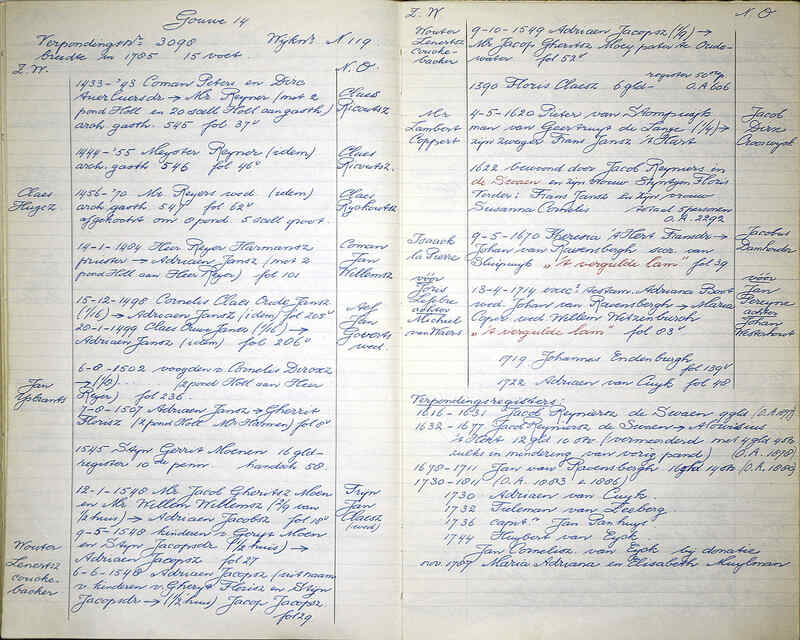 Gouwe 14
Verpondings Nr: 3098 Wykn: N 119
breedte in 1785 15 voet.
Z. W. N. O.
1433-'43 Coman Peter en Dirc
→ Mr. Reyner (met 2
pond Holl en 20 scell Holl aan gasth)
arch. gasth. 545 fol 37v
Claes
Ricoutsz
1444-'55 Meyster Reyner (idem)
arch. gasth. 546 fol 46v
Claes
Ricoutsz.
Claes
Hugez
1456-'70 Mr. Reyers wed. (idem)
arch. gasth. 547 fol 62v
afgekocht om 8 pond. 5 scell groot.
Claes
14-1-1484 Heer Reyer Harmansz
priester → Adriaen Jansz (met 2
pond Holl aan Heer Reyer) fol 101
Coman
Jan
Willemsz
15-12-1498 Cornelis Claes Oude Jansz
(1/16) → Adriaen Jansz (idem) fol 205v
20-1-1499 Claes Ouwe Janes (1/16) →
Adriaen Jansz (idem) fol 206v
Aef
Jan
Goverts
wed.
6-8-1502 voogden v. Cornelis Dircxz
→ (1/8) ... (2 pond Holl aan Heer
Reyer) fol 236.
Jan
Ysbrants
7-8-1507 Adriaen Jansz → Gherrit
Florisz (2 pond Holl Mr Harmen) fol 8v
1545 Styn Gerrit Moenen 16 gld-
register 10de penn. handsch 58.
12-1-1548 Mr. Jacob Gheritsz Moen
en Mr. Willem Willemsz (2/9 van
1/2 huis) → Adriaen Jacobsz fol 18v
Tryn
Jan
Claesz
9-5-1548 kinderen v. Geryt Moen
en Styn Jacopsdr (1/2 huis) →
Adriaen Jacopsz fol 27
Wouter
Lenertsz
coucke-
backer
6-6-1548 Adriaen Jacopsz (uit naam
v. kinderen v. Gheryt Florisz en Styn
Jacopsdr → (1/2 huis) Jacop Jacopsz
fol 29
Z. W. N. O.
Wouter
Lenertsz
coucke-
backer
9-10-1549 Adriaen Jacopsz (1/9) →
Mr. Jacop Gheritsz Moey pater te Oude-
water fol 52v
register 50e p.
1390 Floris Claesz 6 gld- O.A 606
Mr.
Lambert
Coppert
4-5-1620 Pieter van
man van Geertruyt de Lange (1/4) →
zyn zwager Frans Jansz 't Hart
Jacob
Dirx
Crooswyck
1622 bewoond door Jacob Reyniers in
de Swaen en zyn vrouw Styntgen Floris
Verder: Frans Jansz en zyn vrouw
Susanna Cornelis totaal 5 personen
O.A. 2292
Isaack
la Pierre
9-5-1670 Theresia 't Hert Fransdr →
Johan van Ravensbergh secr. van
Bluipuyk „'t vergulde lam" fol 39
Jacobus
Damhouder
vóór
Joris
Lefebre
achter
Michiel
van Waers
13-4-1714 exec. testam. Adriana Bout
wed. Johan van Ravenbergh → Maria
Cops wed. Willem Wetzenburgh
„'t vergulde lam" fol 83v
vóór
Jan
Pereyne
achter
Johan
Westerhout
1719 Johannes Endenburgh
fol 139v
1722 Adriaen van Cuyk fol 48
Verpondingsregisters:
1616-1631 Jacob Reyniersz de Swaen 9 gld (O.A. 1877)
1632-1677 Jacob Reyniersz de Swaen → Aloisius
't Hart 12 gld 10 st (vermeerderd met 4 gld 4 st
zulks in mindering van vorig pand) (O.A. 1878)
1678-1711 Jan van Ravenbergh 16 gld 14 st (O.A. 1883)
1730-1811 (O.A. 1883 & 1886)
1730 Adriaen van Cuyk.
1732 Tieleman van Leeberg.
1736 captn Jan Panhuys
1744 Huybert van Eyck
Jan Cornelisz van Eyck bij donatie
nov 1789 Maria Adriana en Elisabeth Muylman